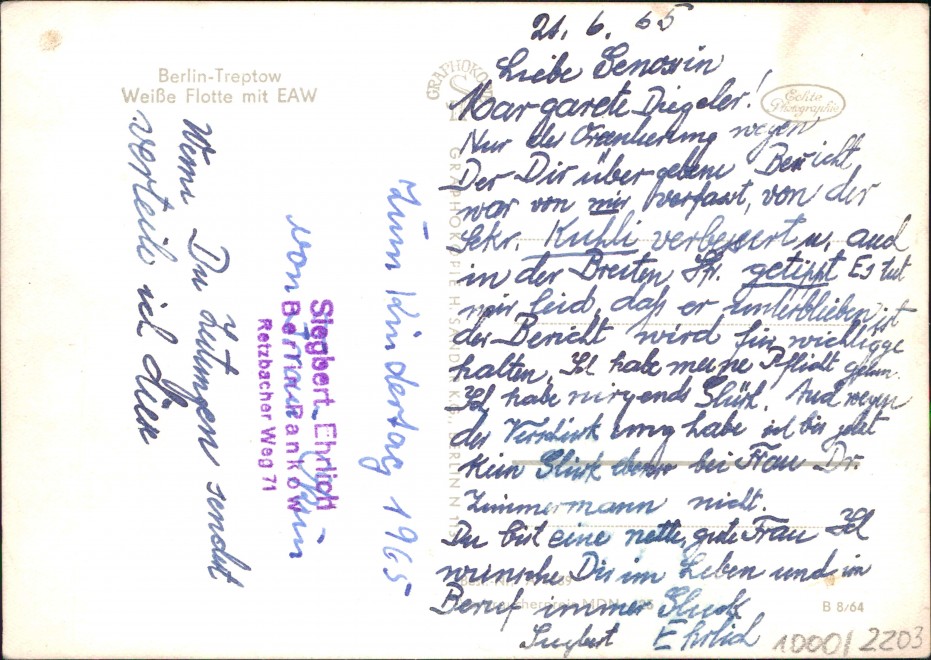 Berlin-Treptow
Weiße Flotte mit EAW
Wenn Du Zeitungen sendest
verteile ich diese
Zum Kindertag 1965
von
Siegbert Ehrlich
Berlin-Pankow
Retzbacher Weg 71
21. 6. 65
Liebe Genossin
Margarete Diegeler!
Nur der Orientierung wegen
Der Dir übergebene Bericht
war von mir verfasst, von der
Sekr. Kuhli verbessert u. auch
in der Breiten Str. getippt Es tut
mir leid, daß er unterblieben ist
der Bericht wird für wichtigge
halten. Ich habe meine Pflicht getan.
Ich habe nirgends Glück. Auch wegen
der Verschickung habe ich bis jetzt
kein Glück bei Frau Dr.
Zimmermann nicht.
Du bist eine nette, gute Frau Ich
wünsche Dir im Leben und im
Beruf immer Glück
Siegbert Ehrlich
Echte
Photographie
B 8/64
10001 2203